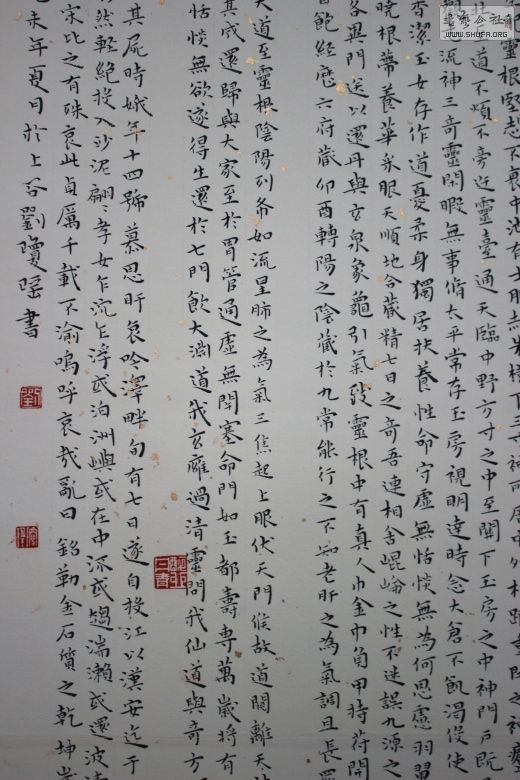 靈根堅志不衰中池有士服赤朱橫下三寸神所居中外相距重閉之神廬
道不煩不旁迕靈臺通天臨中野方寸之中至關下玉房之中神門戶既
流神三奇靈閑暇無事脩太平常存玉房視明達時念大倉不飢渴役使
香潔玉女存作道憂柔身獨居扶養性命守虛無恬惔無為何思慮羽翼
曉根蒂養華采服天順地合藏精七日之奇吾連相舍崐崘之性不迷誤九源之
各異門送以還丹與玄泉象龜引氣致靈根中有真人巾金巾負甲持苻開
自飽經歷六府藏卯酉轉陽之陰藏於九常能行之不知老肝之為氣調且長羅
大道至靈根陰陽列布如流星肺之為氣三焦起上服伏天門候故道闚離天
其成還歸與大家至於胃管通虛無閉塞命門如玉都壽專萬歲將有
恬惔無欲遂得生還於七門飲大淵道我玄廱過清靈問我仙道與奇方
其屍時娥年十四號慕思盱哀吟澤畔旬有七日遂自投江以漢安迄于
然輕絕投入沙泥翩〻孝女乍沉乍浮或泊洲嶼或在中流或趨湍瀨或還波濤
宋比之有殊哀此貞厲千載不渝嗚呼哀哉亂曰銘勒金石質之乾坤歲
未年夏日於上谷劉瓊瑤書
WWW.SHUFA.ORG